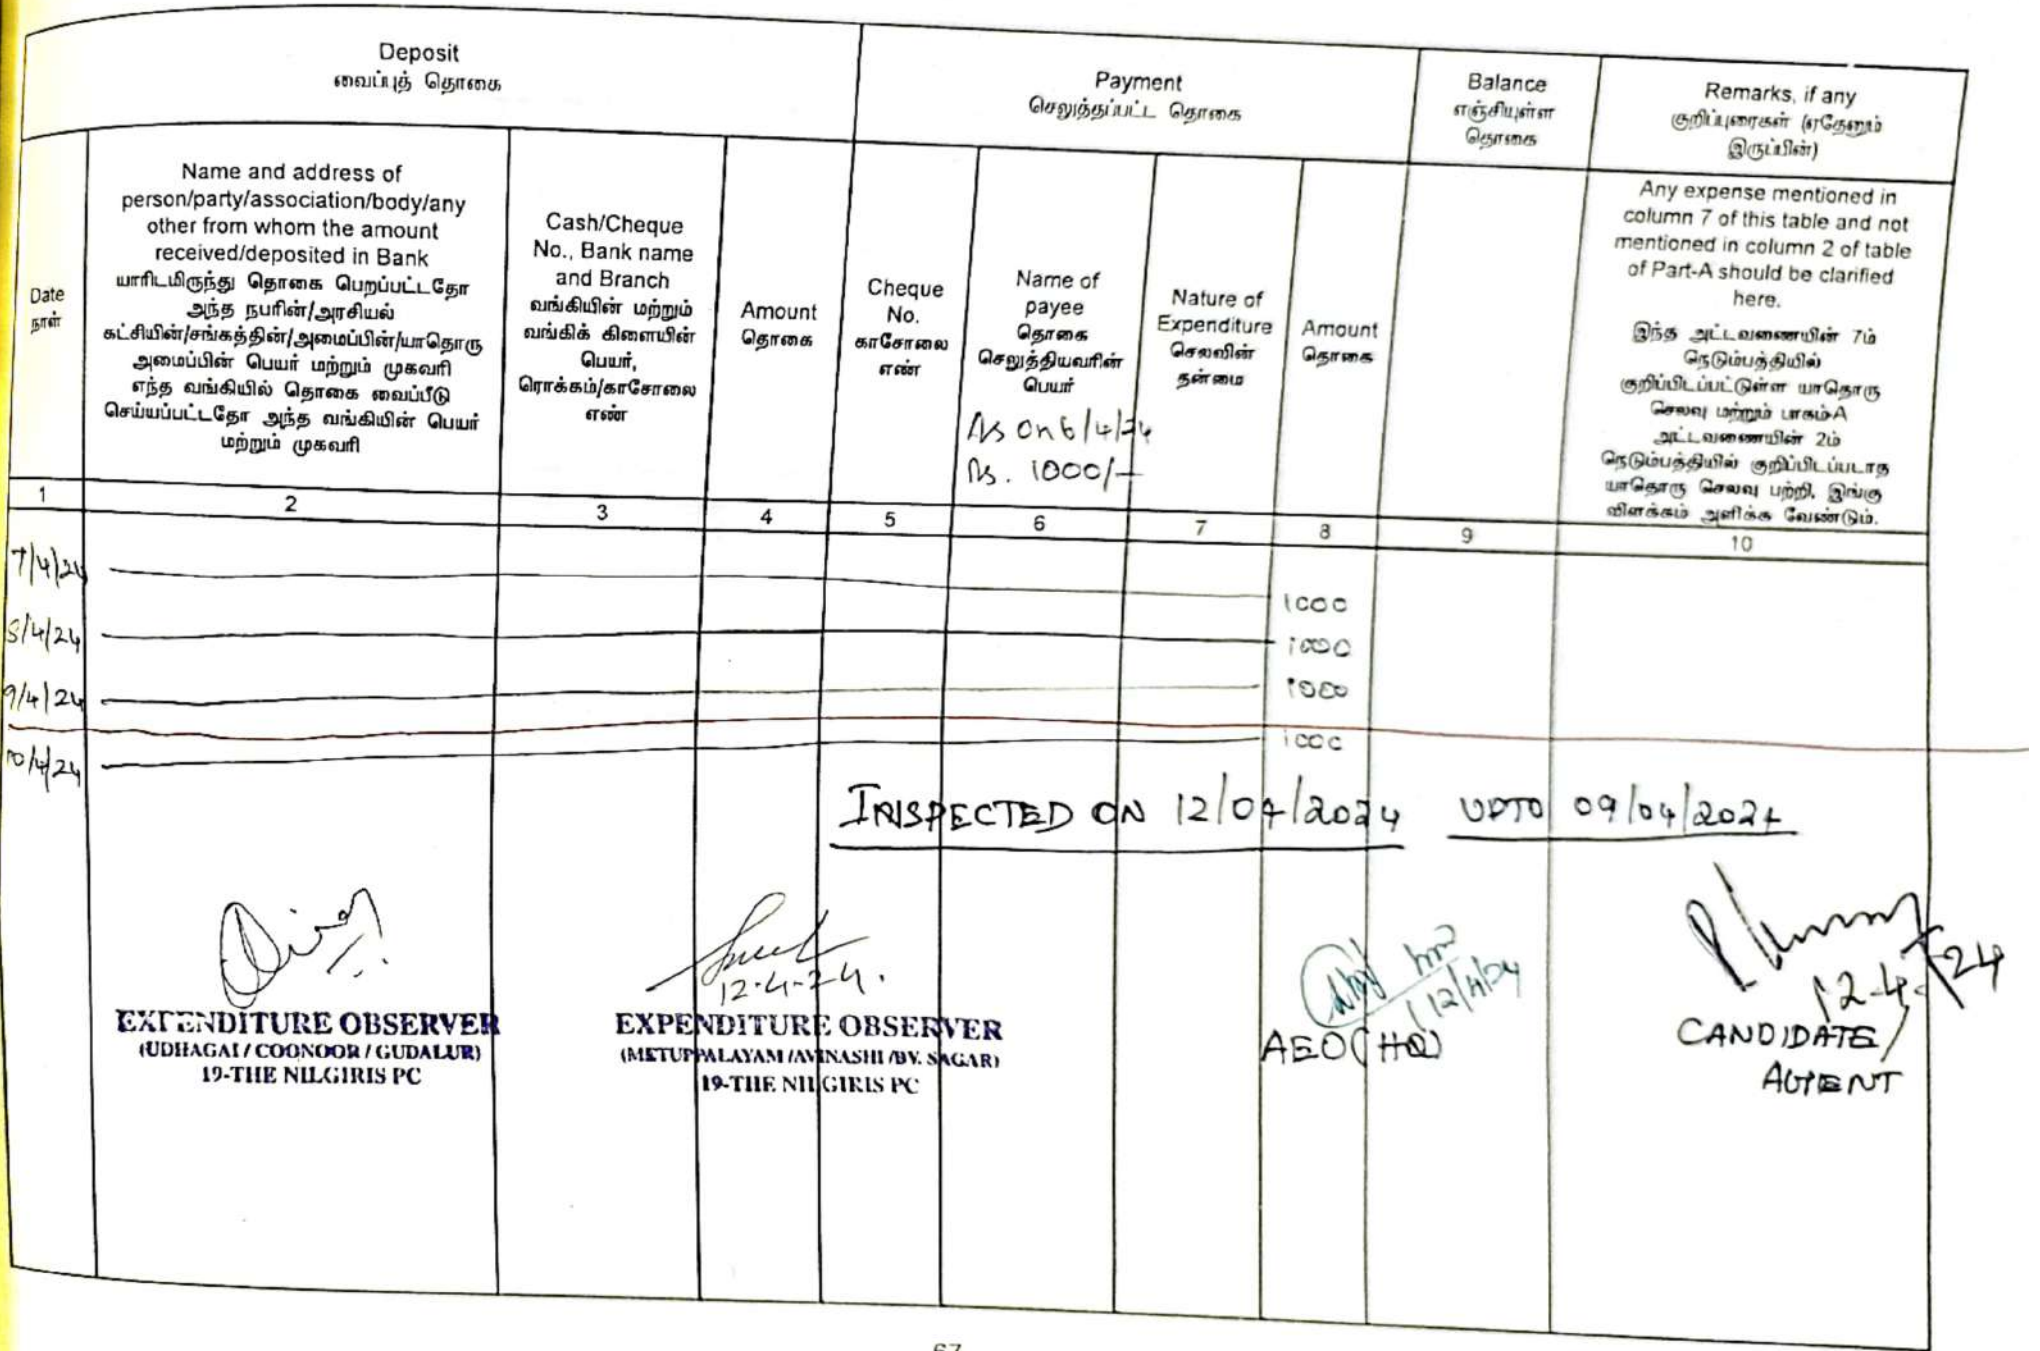 Deposit
வைப்புத் தொகை
Payment
செலுத்தப்பட்ட தொகை
Balance
எஞ்சியுள்ள
தொகை
Remarks, if any
குறிப்புரைகள் (ஏதேனும்
இருப்பின்)
Date
நாள்
Name and address of
person/party/association/body/any
other from whom the amount
received/deposited in Bank
யாரிடமிருந்து தொகை பெறப்பட்டதோ
அந்த நபரின்/அரசியல்
கட்சியின்/சங்கத்தின்/அமைப்பின்/யாதொரு
அமைப்பின் பெயர் மற்றும் முகவரி
எந்த வங்கியில் தொகை வைப்பீடு
செய்யப்பட்டதோ அந்த வங்கியின் பெயர்
மற்றும் முகவரி
Cash/Cheque
No., Bank name
and Branch
வங்கியின் மற்றும்
வங்கிக் கிளையின்
பெயர்,
ரொக்கம்/காசோலை
எண்
Amount
தொகை
Cheque
No.
காசோலை
எண்
Name of
payee
தொகை
செலுத்தியவரின்
பெயர்
As on 6/4/24
Rs. 1000/-
Nature of
Expenditure
செலவின்
தன்மை
Amount
தொகை
Any expense mentioned in
column 7 of this table and not
mentioned in column 2 of table
of Part-A should be clarified
here.
இந்த அட்டவணையின் 7ம்
நெடும்பத்தியில்
குறிப்பிடப்பட்டுள்ள யாதொரு
செலவு மற்றும் பாகம்-A
அட்டவணையின் 2ம்
நெடும்பத்தியில் குறிப்பிடப்படாத
யாதொரு செலவு பற்றி, இங்கு
விளக்கம் அளிக்க வேண்டும்.
1 2 3 4 5 6 7 8 9 10
7/4/24 1000
8/4/24 1000
9/4/24 1000
10/4/24 1000
INSPECTED ON 12/04/2024 UPTO 09/04/2024
12-4-24.
12/4/24
12-4-24
EXPENDITURE OBSERVER
(UDHAGAI / COONOOR / GUDALUR)
19-THE NILGIRIS PC
EXPENDITURE OBSERVER
(METUPPALAYAM /AVINASHI /BV. SAGAR)
19-THE NILGIRIS PC
AEO (HQ)
CANDIDATE/
AGENT
67